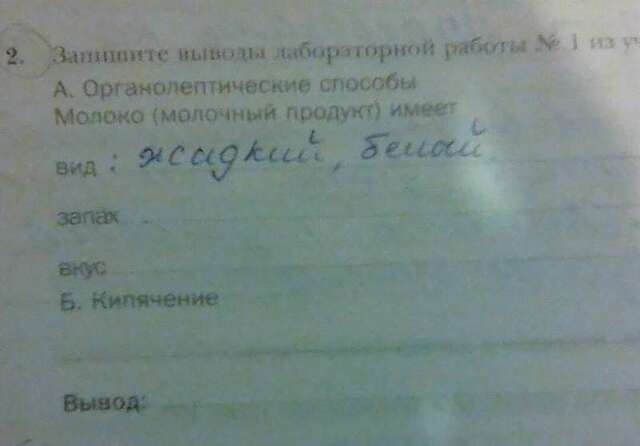 2. Запишите выводы лабораторной работы № 1 из уч
А. Органолептические способы
Молоко (молочный продукт) имеет
вид : жидкий, белый
запах
вкус
Б. Кипячение
Вывод: